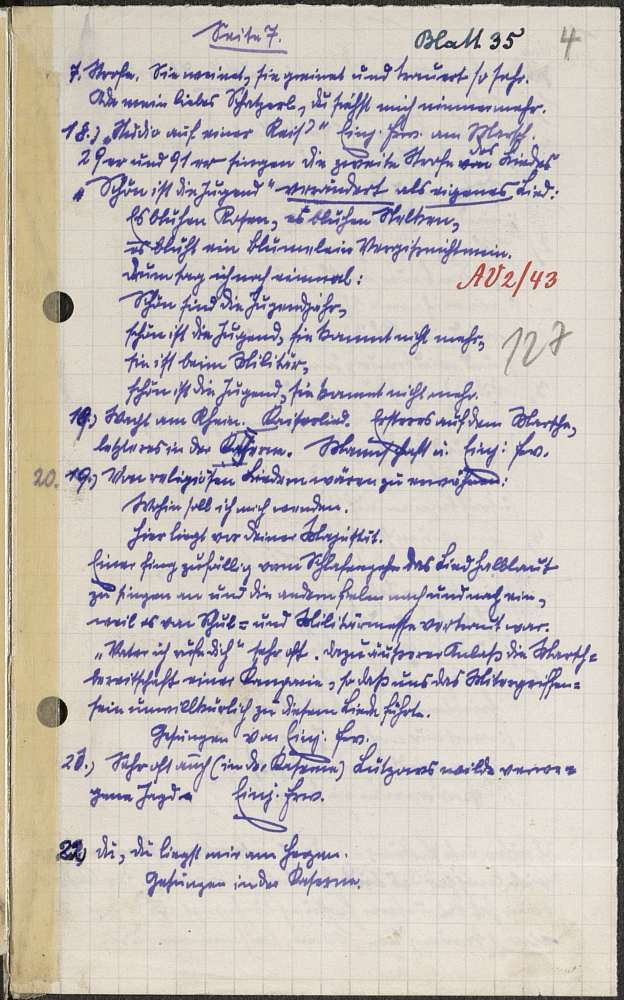 Seite 7.
Blatt 35
4
7. Strofe. Sie weinet, sie greinet und trauert so sehr.
Ade mein liebes Schatzerl, du siehst mich nimmermehr.
18.) "Studio auf einer Reis'?" Einj. Frw. am Marsch.
29er und 91er singen die zweite Strofe von des Liedes
"Schön ist die Jugend" verändert als eigenes Lied:
Es blühen Rosen, es blühen Nelken,
es blüht ein Blümelein Vergissnichtmein.
Drum sag ich noch einmal:
AV2/43
Schön sind die Jugendjahr,
schön ist die Jugend, sie kommt nicht mehr,
127
sie ist beim Militär,
schön ist die Jugend, sie kommt nicht mehr.
19.) Wacht am Rhein. Kaiserlied. Ersteres auf dem Marsche,
letzteres in der Kaserne. Mannschaft u. Einj. Frw.
20. 19.) Von religiösen Liedern wären zu erwähnen:
Wohin soll ich mich wenden.
Hier liegt vor deiner Majestät.
Einer fing zufällig vorm Schlafengehn das Lied halblaut
zu singen an und die andern fielen nach und nach ein,
weil es von Schul- und Militärmesse vertraut war.
"Vater ich rufe dich" sehr oft. Dazu äußerer Anlaß die Marsch-
bereitschaft einer Kompanie, so daß uns das Mitergriffen-
sein unwillkürlich zu diesem Liede führte.
Gesungen von Einj. Frw.
21.) Sehr oft auch (in der Kaserne) Lützows wilde verwe-
gene Jagd. Einj. Frw.
22.) Du, du liegst mir am Herzen.
Gesungen in der Kaserne.